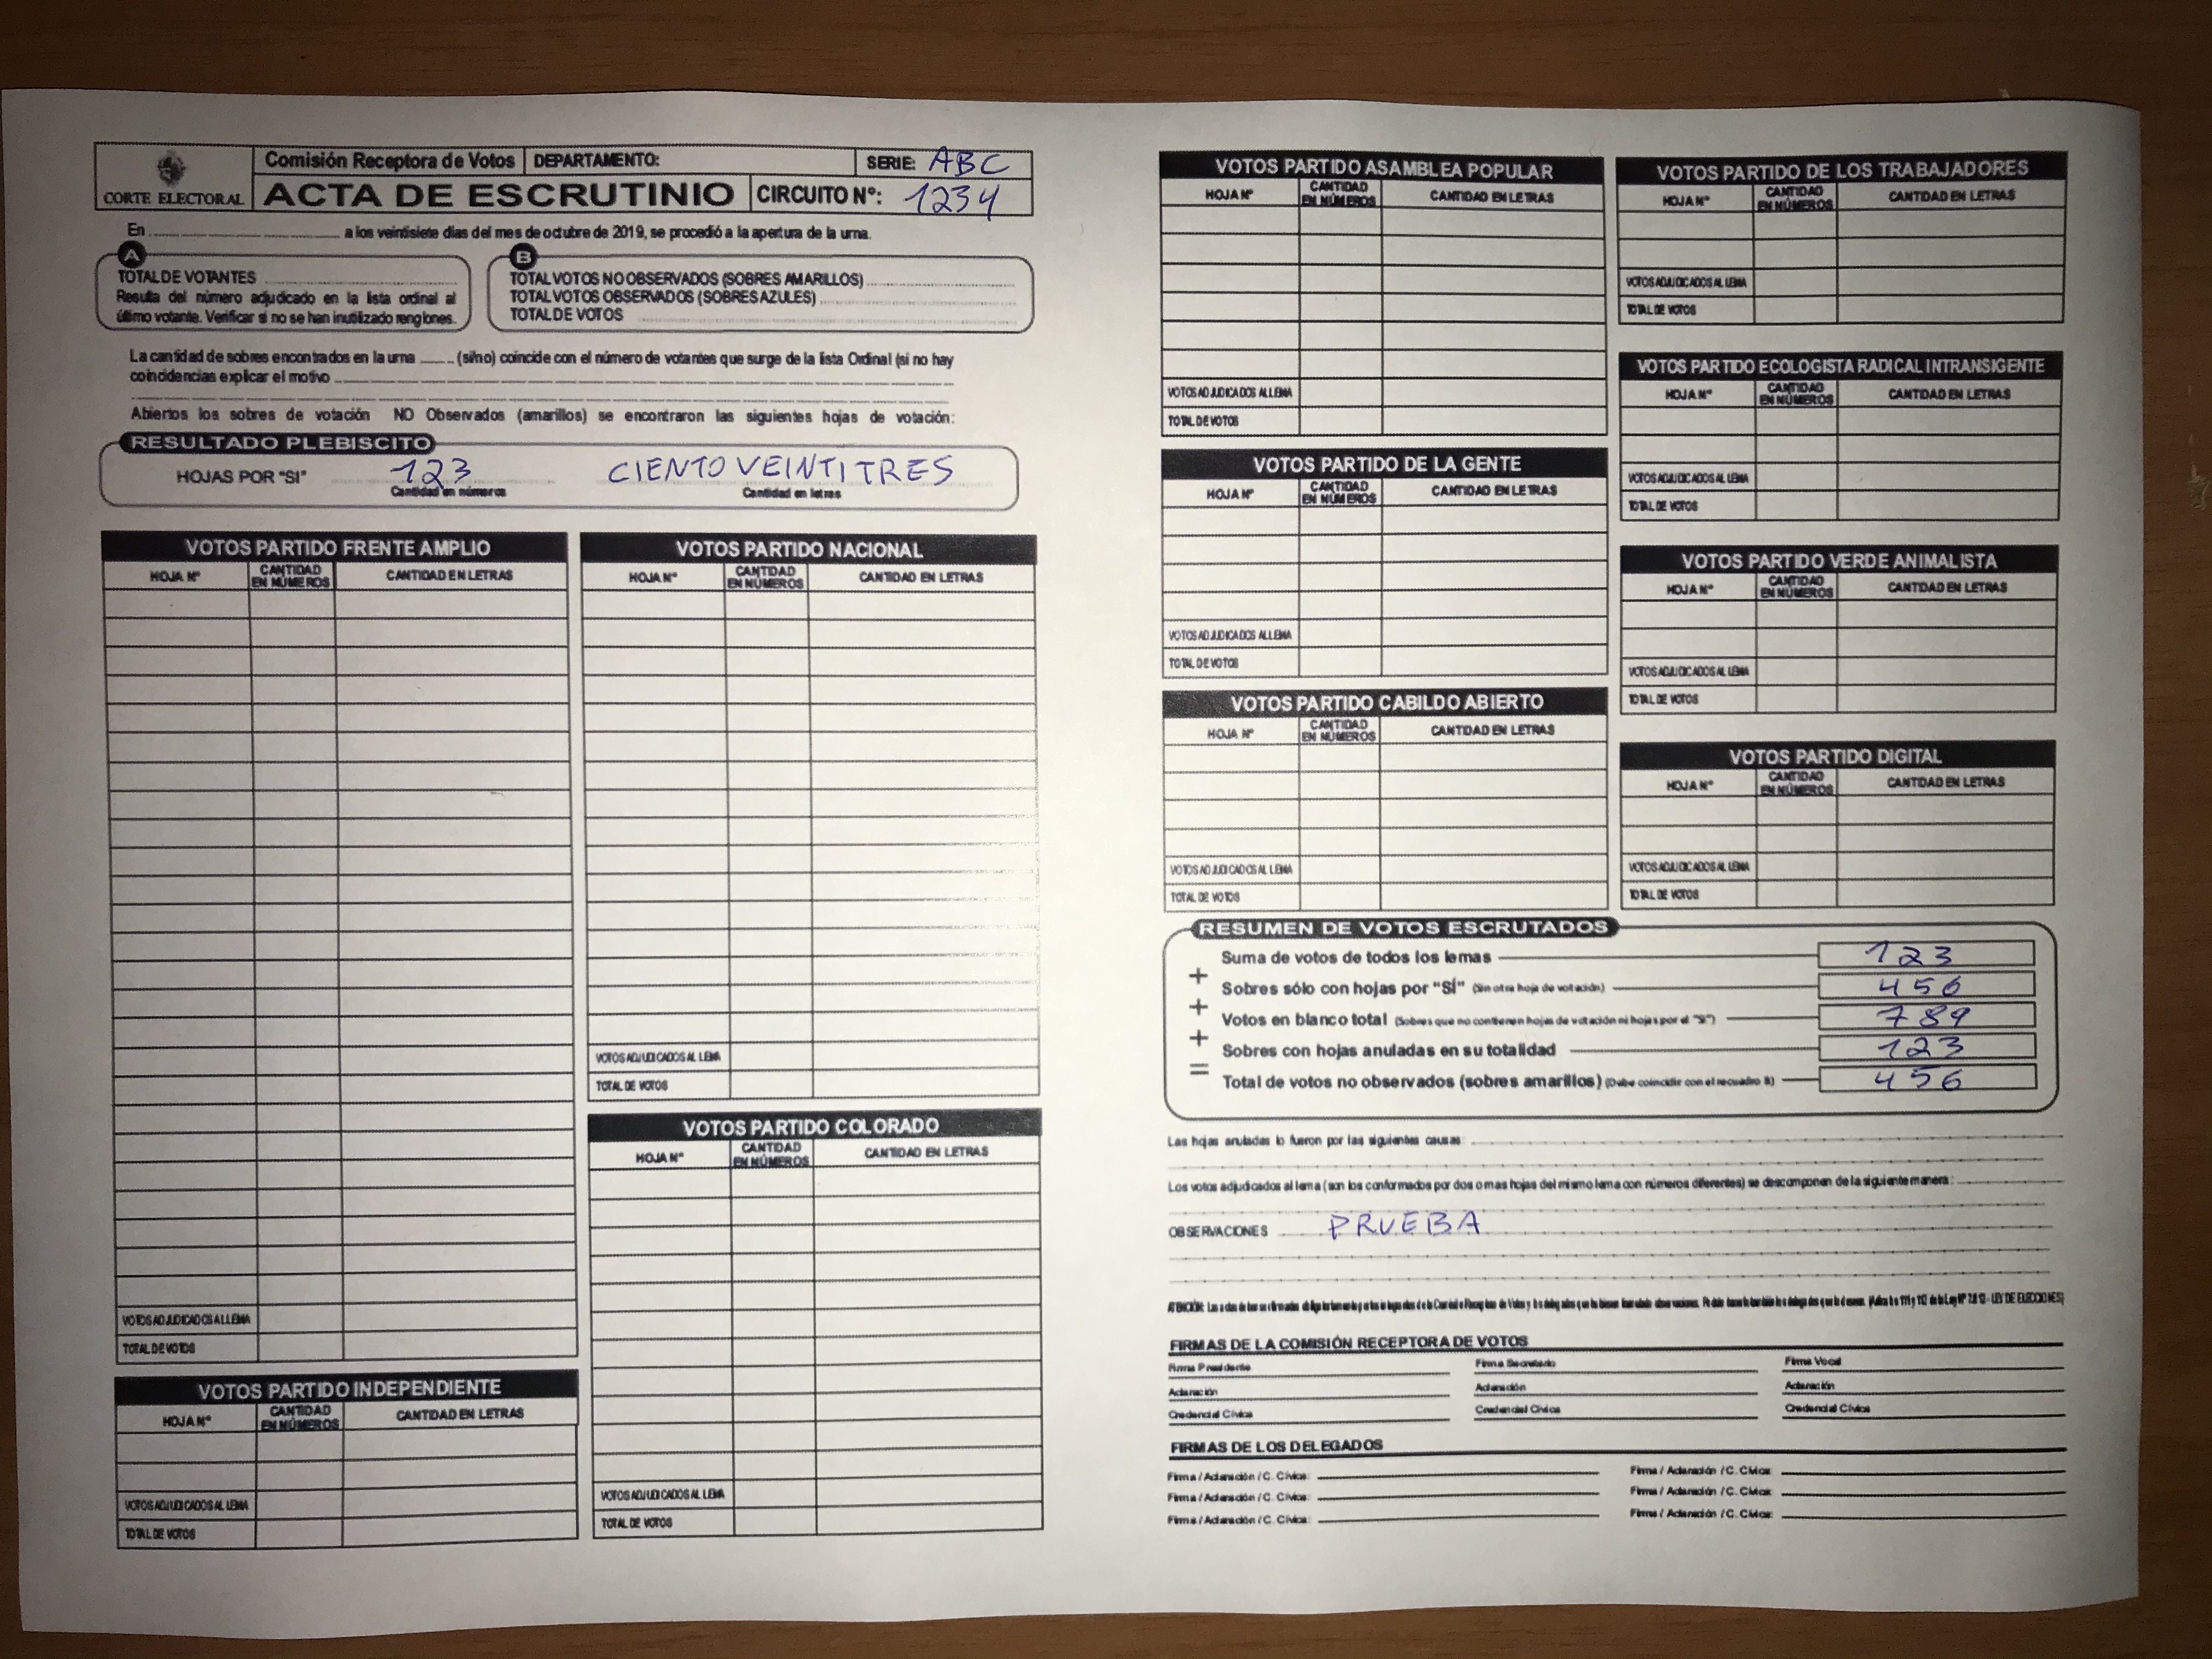 CORTE ELECTORAL
Comisión Receptora de Votos
DEPARTAMENTO:
SERIE: ABC
ACTA DE ESCRUTINIO
CIRCUITO Nº: 1234
En a los veintisiete días del mes de octubre de 2019, se procedió a la apertura de la urna.
A
TOTAL DE VOTANTES
Resulta del número adjudicado en la lista ordinal al
último votante. Verificar si no se han inutilizado renglones.
B
TOTAL VOTOS NO OBSERVADOS (SOBRES AMARILLOS)
TOTAL VOTOS OBSERVADOS (SOBRES AZULES)
TOTAL DE VOTOS
La cantidad de sobres encontrados en la urna (si/no) coincide con el número de votantes que surge de la lista Ordinal (si no hay
coincidencias explicar el motivo
Abiertos los sobres de votación NO Observados (amarillos) se encontraron las siguientes hojas de votación:
RESULTADO PLEBISCITO
HOJAS POR "SI" 123 CIENTO VEINTITRES
Cantidad en números Cantidad en letras
VOTOS PARTIDO FRENTE AMPLIO
HOJA Nº CANTIDAD EN NÚMEROS CANTIDAD EN LETRAS
VOTOS ADJUDICADOS AL LEMA
TOTAL DE VOTOS
VOTOS PARTIDO INDEPENDIENTE
HOJA Nº CANTIDAD EN NÚMEROS CANTIDAD EN LETRAS
VOTOS ADJUDICADOS AL LEMA
TOTAL DE VOTOS
VOTOS PARTIDO NACIONAL
HOJA Nº CANTIDAD EN NÚMEROS CANTIDAD EN LETRAS
VOTOS ADJUDICADOS AL LEMA
TOTAL DE VOTOS
VOTOS PARTIDO COLORADO
HOJA Nº CANTIDAD EN NÚMEROS CANTIDAD EN LETRAS
VOTOS ADJUDICADOS AL LEMA
TOTAL DE VOTOS
VOTOS PARTIDO ASAMBLEA POPULAR
HOJA Nº CANTIDAD EN NÚMEROS CANTIDAD EN LETRAS
VOTOS ADJUDICADOS AL LEMA
TOTAL DE VOTOS
VOTOS PARTIDO DE LA GENTE
HOJA Nº CANTIDAD EN NÚMEROS CANTIDAD EN LETRAS
VOTOS ADJUDICADOS AL LEMA
TOTAL DE VOTOS
VOTOS PARTIDO CABILDO ABIERTO
HOJA Nº CANTIDAD EN NÚMEROS CANTIDAD EN LETRAS
VOTOS ADJUDICADOS AL LEMA
TOTAL DE VOTOS
VOTOS PARTIDO DE LOS TRABAJADORES
HOJA Nº CANTIDAD EN NÚMEROS CANTIDAD EN LETRAS
VOTOS ADJUDICADOS AL LEMA
TOTAL DE VOTOS
VOTOS PARTIDO ECOLOGISTA RADICAL INTRANSIGENTE
HOJA Nº CANTIDAD EN NÚMEROS CANTIDAD EN LETRAS
VOTOS ADJUDICADOS AL LEMA
TOTAL DE VOTOS
VOTOS PARTIDO VERDE ANIMALISTA
HOJA Nº CANTIDAD EN NÚMEROS CANTIDAD EN LETRAS
VOTOS ADJUDICADOS AL LEMA
TOTAL DE VOTOS
VOTOS PARTIDO DIGITAL
HOJA Nº CANTIDAD EN NÚMEROS CANTIDAD EN LETRAS
VOTOS ADJUDICADOS AL LEMA
TOTAL DE VOTOS
RESUMEN DE VOTOS ESCRUTADOS
Suma de votos de todos los lemas 123
+ Sobres sólo con hojas por "SÍ" (Sin otra hoja de votación) 456
+ Votos en blanco total (Sobres que no contienen hojas de votación ni hojas por el "SI") 789
+ Sobres con hojas anuladas en su totalidad 123
= Total de votos no observados (sobres amarillos) (Debe coincidir con el recuadro B) 456
Las hojas anuladas lo fueron por las siguientes causas:
Los votos adjudicados al lema (son los conformados por dos o mas hojas del mismo lema con números diferentes) se descomponen de la siguiente manera:
OBSERVACIONES PRUEBA
FIRMAS DE LA COMISIÓN RECEPTORA DE VOTOS
Firma Presidente Firma Secretario Firma Vocal
Aclaración Aclaración Aclaración
Credencial Cívica Credencial Cívica Credencial Cívica
FIRMAS DE LOS DELEGADOS
Firma / Aclaración / C. Cívica: Firma / Aclaración / C. Cívica:
Firma / Aclaración / C. Cívica: Firma / Aclaración / C. Cívica:
Firma / Aclaración / C. Cívica: Firma / Aclaración / C. Cívica: